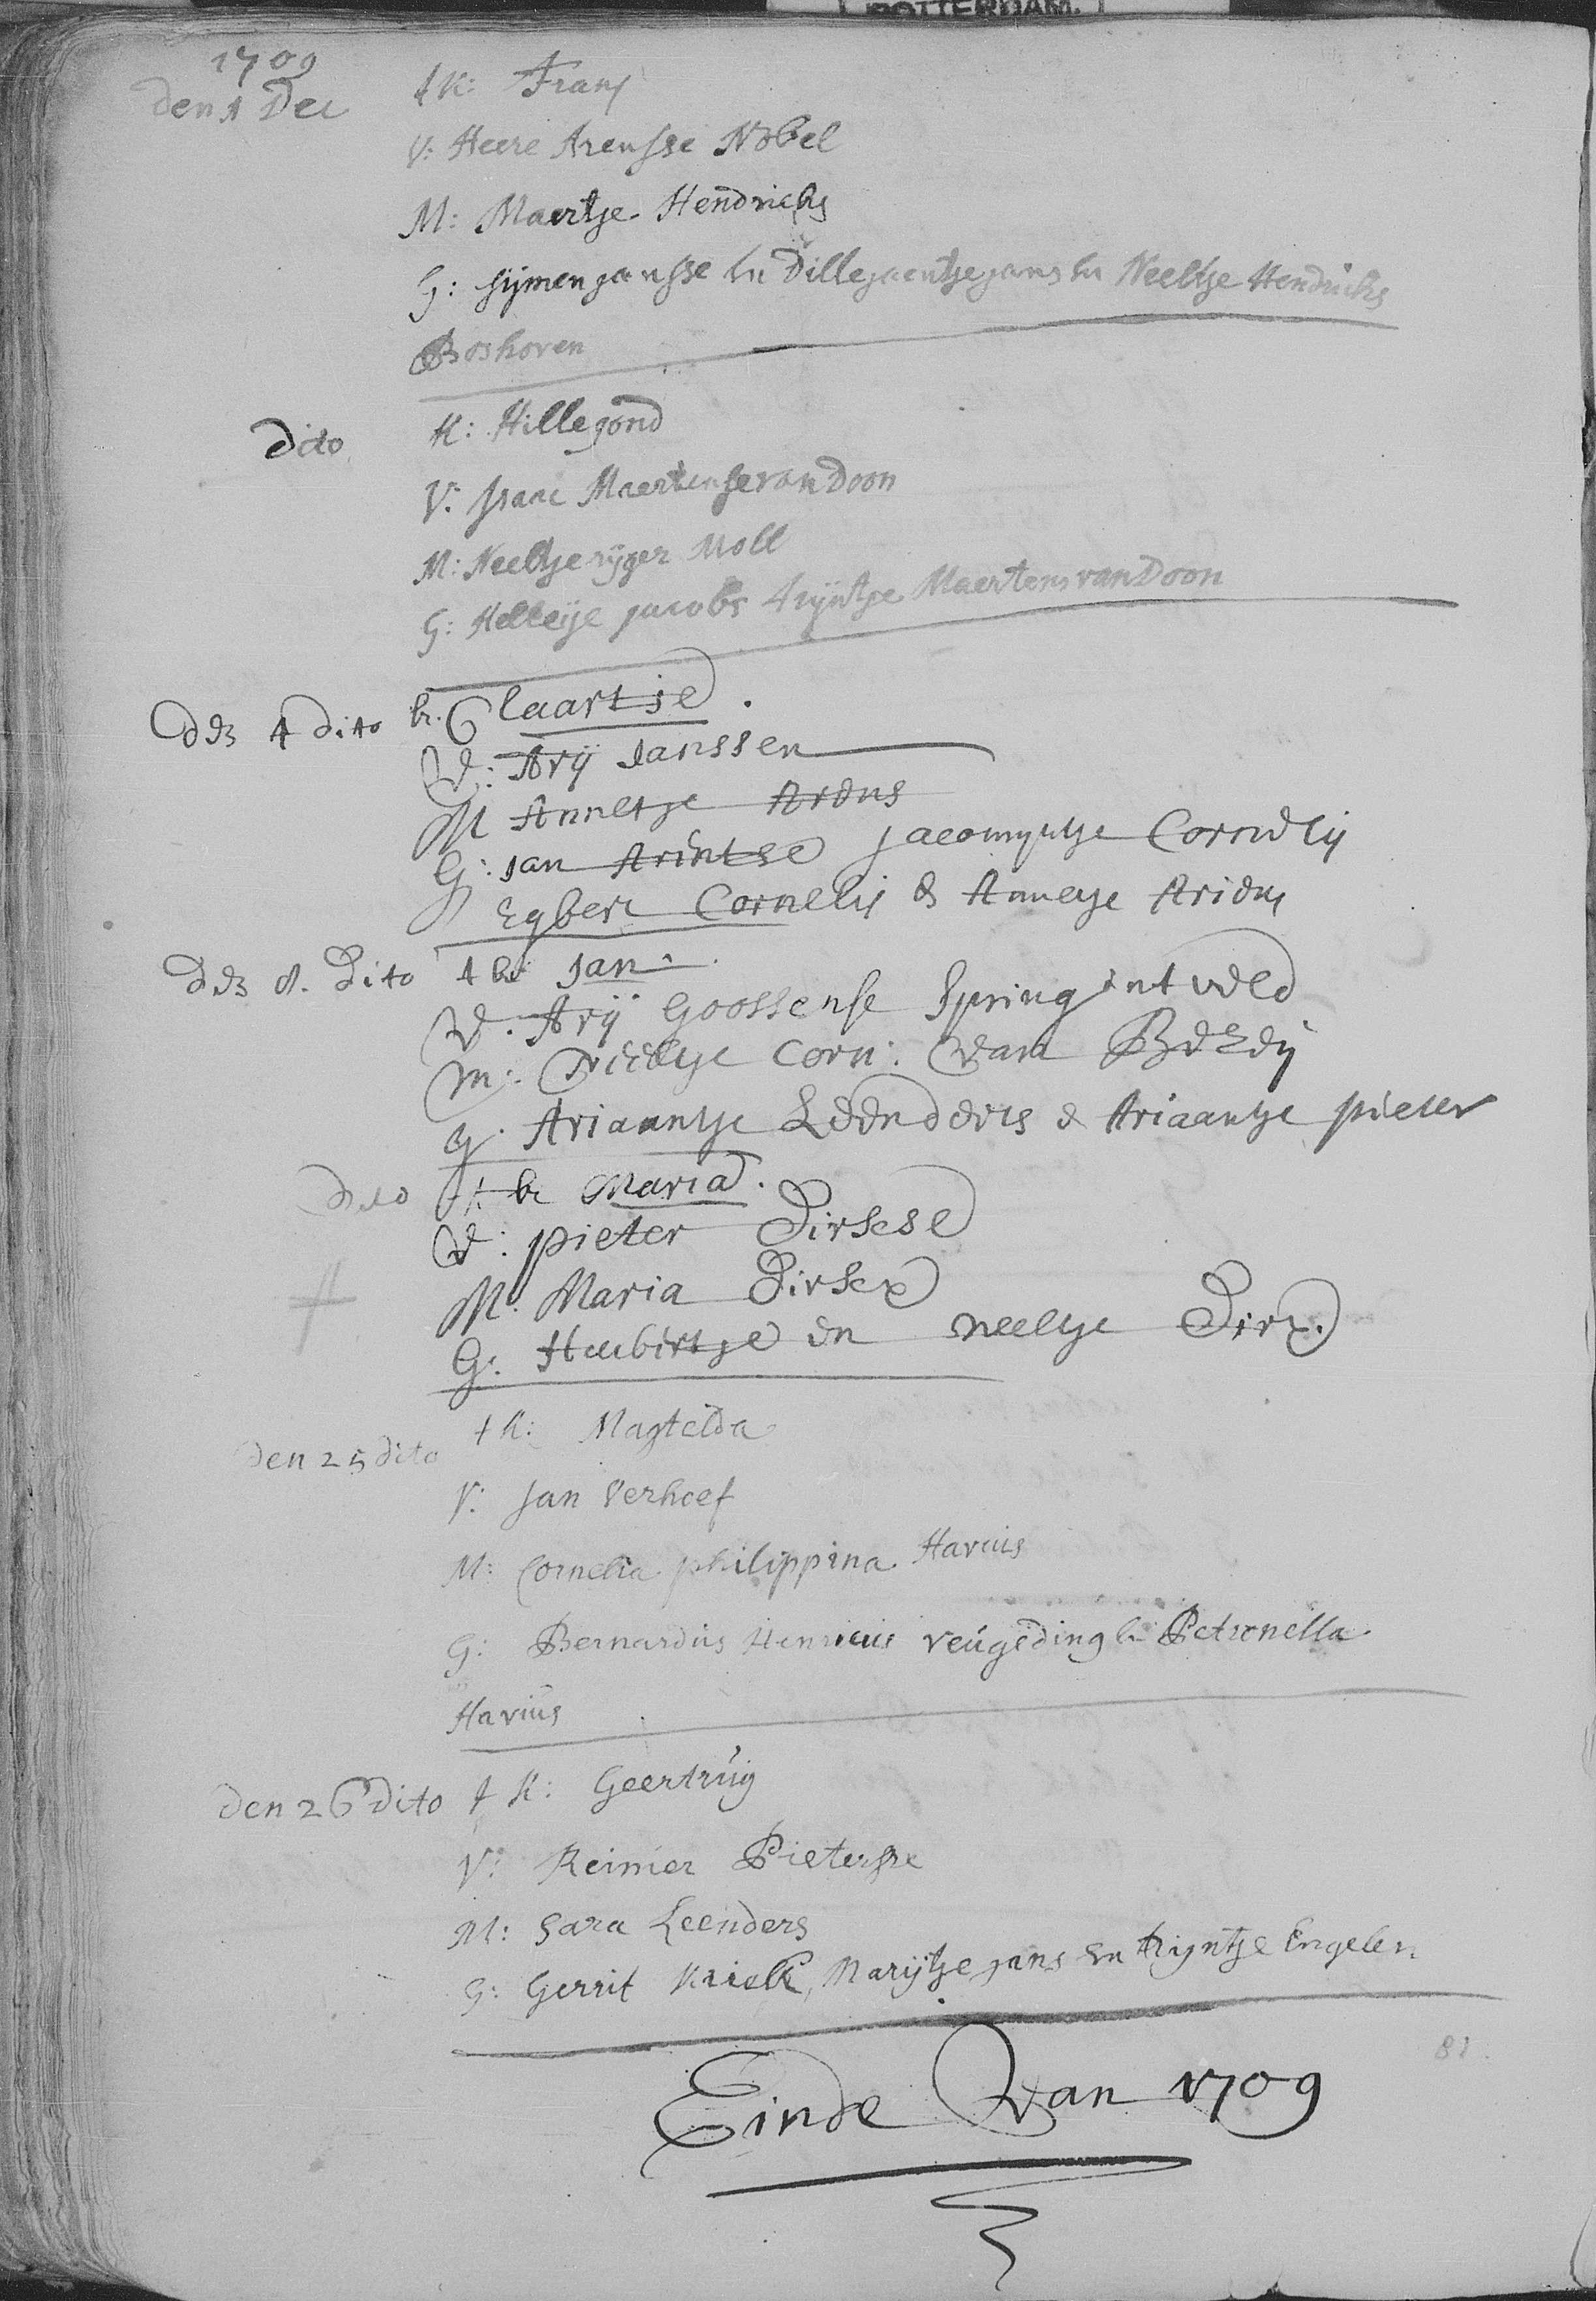 ROTTERDAM.
1709
den 1 Dec
† K: Frans
V: Heere Arensse Nobel
M: Maertje Hendricks
G: Sijmen Jansse en Dillejaentje Jans en Neeltje Hendricks
Boshoven
dito K: Hillegond
V: Isaac Maertense van Doon
M: Neeltje rijger Moll
G: Jacobs trijntje Maertens van Doon
den 4 dito k. Claartie.
V: Arij Janssen
M Annetje Ariens
G: Jan Arintse Jacomyntje Cornelij
Egbert Cornelis & Annetje Ariens
den 8. Dito † k Jan
V. Arij Goossense Springintveld
M: Neeltje Corn: van
g. Ariaantje Leenders & Ariaantje pieter
dito † k Maria.
V: pieter Dirksse
M. Maria Dirkx
G: Huibertje en neeltje Dirx.
den 25 dito † K: Magtelda
V: Jan Verhoef
M: Cornelia philippina Havius
G: Bernardus Henricus Veugeding en Petronella
Havius
den 26 Dito † K: Geertruij
V: Reinier Pietersse
M: Sara Leenders
G: Gerrit Kriek, Marijtje Jans en trijntje Engelen
81.
Einde Van 1709